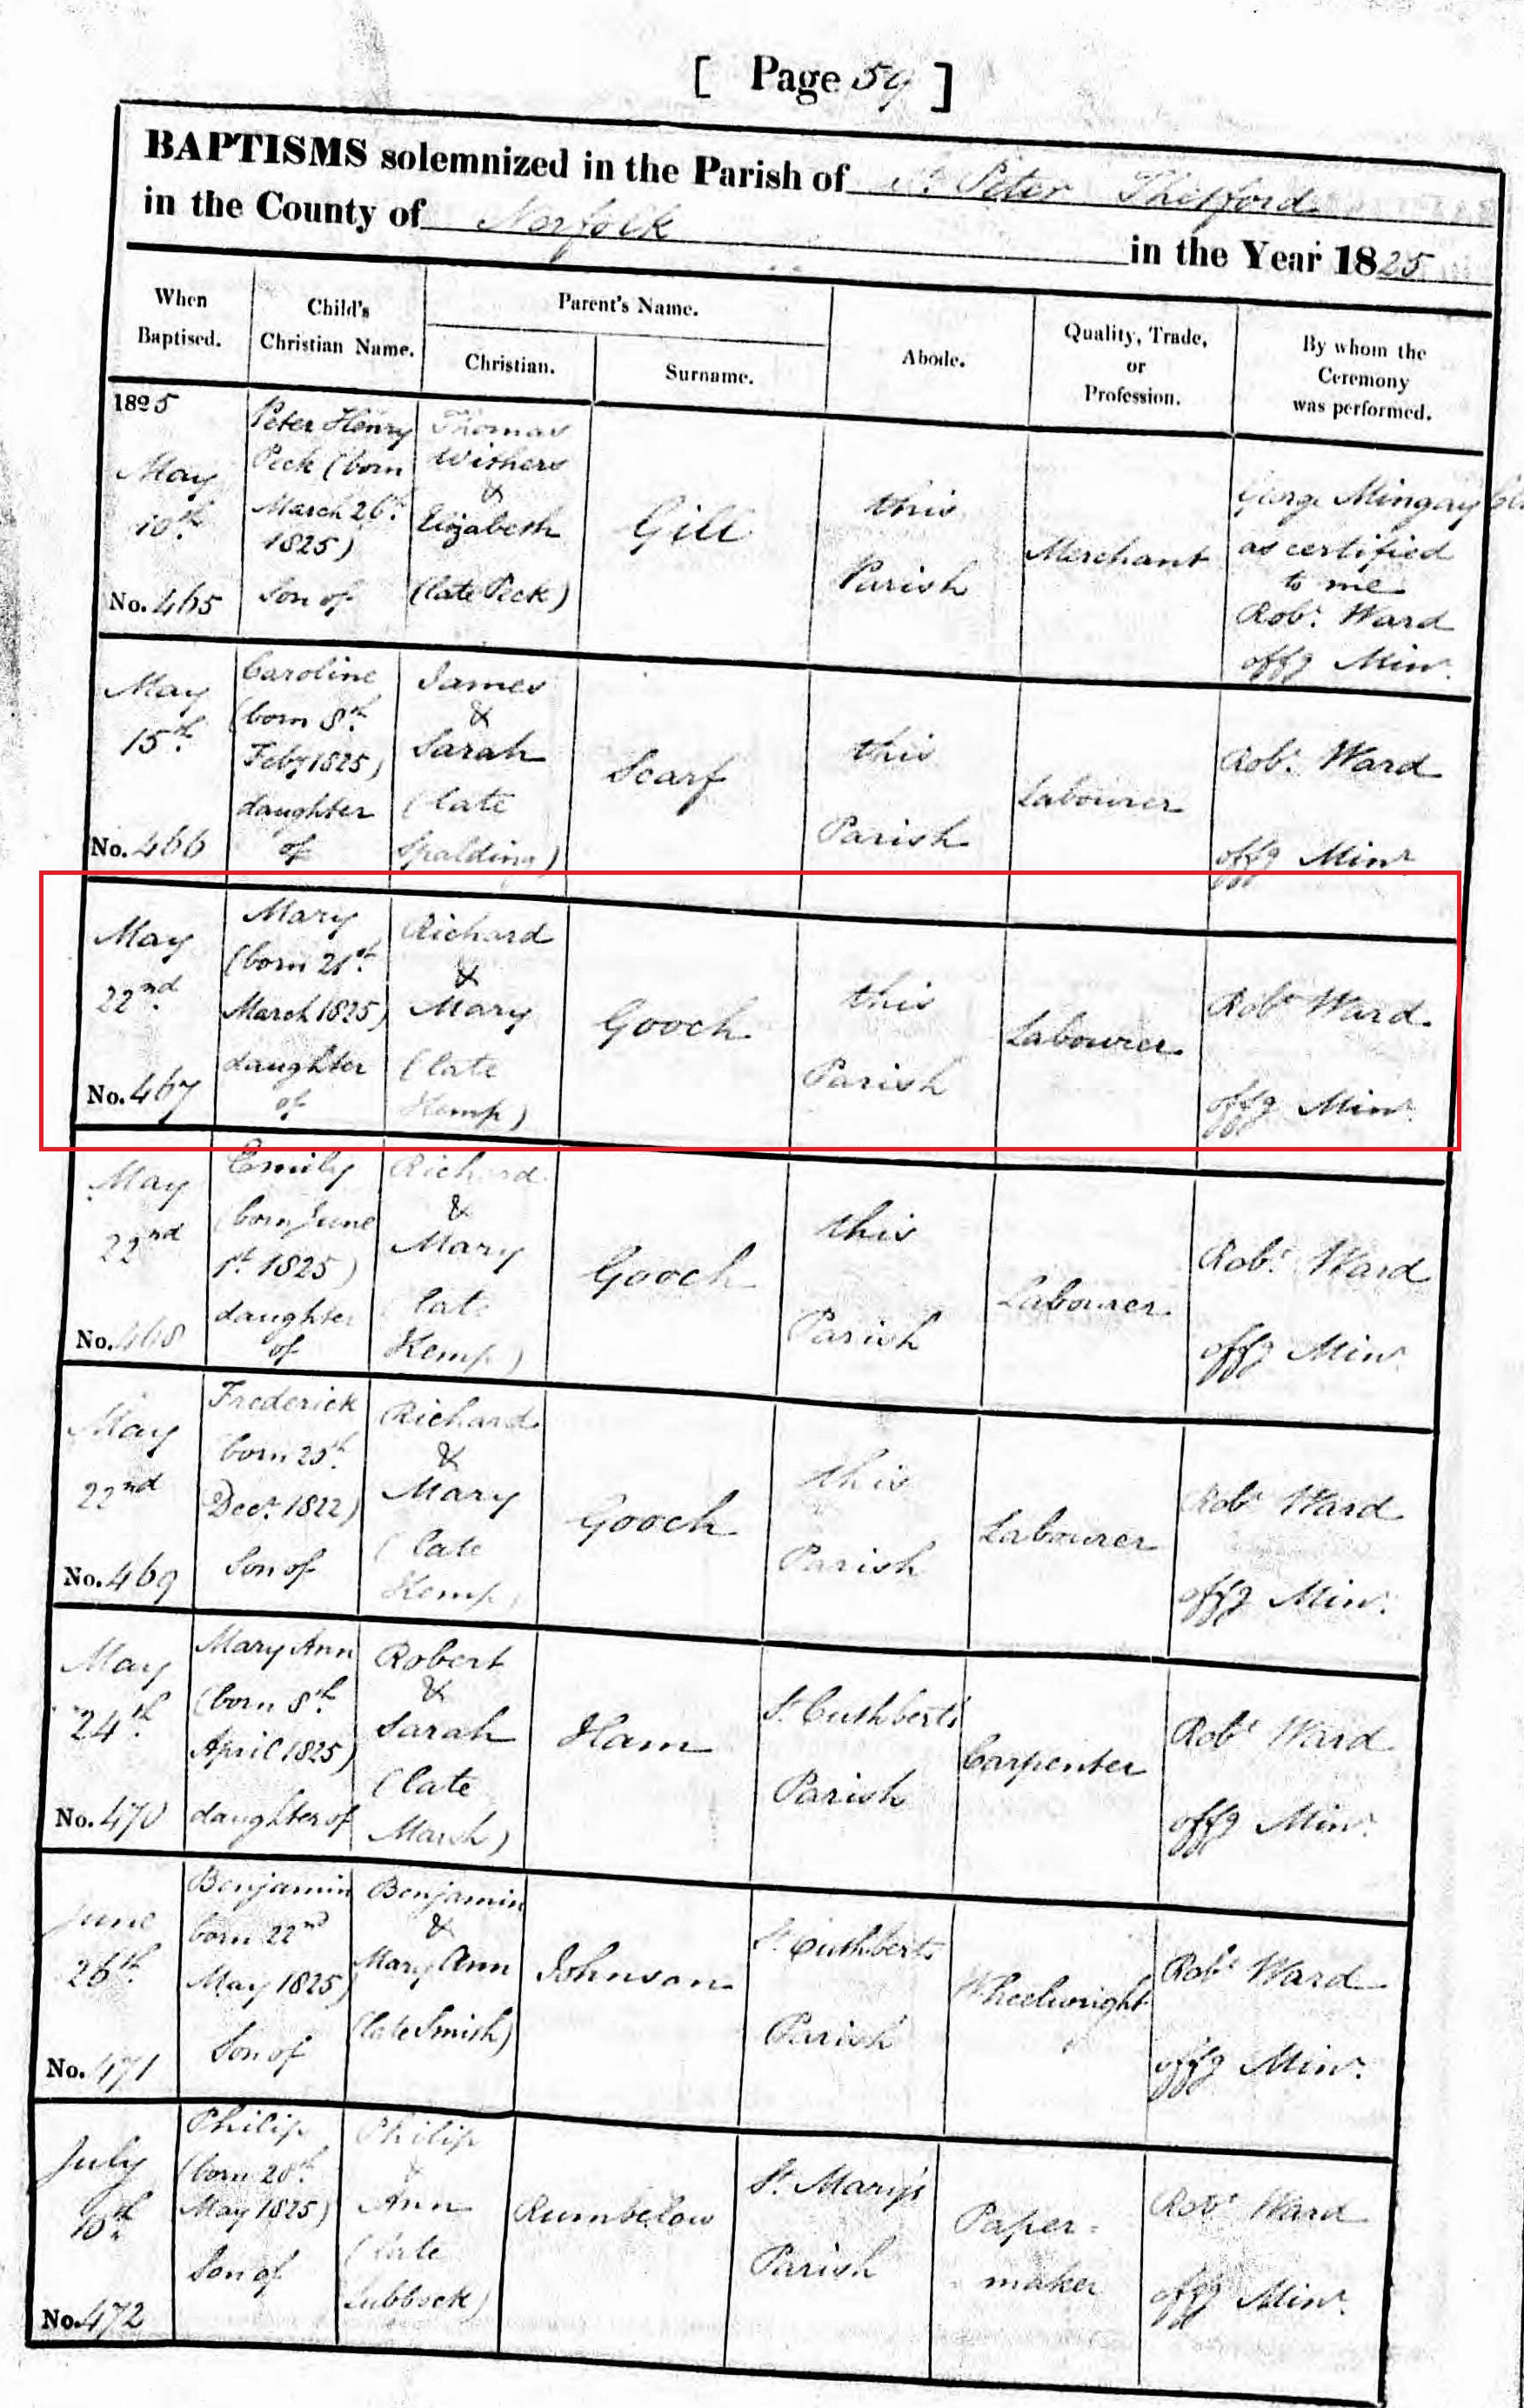 [ Page 59 ]
BAPTISMS solemnized in the Parish of St. Peter Thetford
in the County of Norfolk in the Year 1825
When
Baptised.
Child's
Christian Name.
Parent's Name.
Christian.
Surname.
Abode.
Quality, Trade,
or
Profession.
By whom the
Ceremony
was performed.
1825
May
10th.
No. 465
Peter Henry
Peck (born
March 26th.
1825)
Son of
Thomas
Withers
&
Elizabeth
(late Peck)
Gill
this
Parish
Merchant
George Mingay
as certified
to me
Robt. Ward
offg Minr.
May
15th.
No. 466
Caroline
(born 8th.
Feby 1825)
daughter
of
James
&
Sarah
(late
Spalding)
Scarf
this
Parish
Labourer
Robt. Ward
offg Minr
May
22nd.
No. 467
Mary
(born 21st.
March 1825)
daughter
of
Richard
&
Mary
(late
Kemp)
Gooch
this
Parish
Labourer
Robt Ward
offg Minr.
May
22nd
No. 468
Emily
(born June
1st. 1825)
daughter
of
Richard
&
Mary
(late
Kemp)
Gooch
this
Parish
Labourer
Robt. Ward
offg Minr.
May
22nd
No. 469
Frederick
born 20th.
Decr. 1822)
Son of
Richard
&
Mary
(late
Kemp)
Gooch
this
Parish
Labourer
Robt Ward
offg Minr.
May
24th.
No. 470
Mary Ann
(born 8th.
April 1825)
daughter of
Robert
&
Sarah
(late
Marsh)
Ham
St. Cuthbert's
Parish
Carpenter
Robt Ward
offg Minr.
June
26th.
No. 471
Benjamin
born 22nd
May 1825)
Son of
Benjamin
&
Mary Ann
(late Smith)
Johnson
St. Cuthberts
Parish
Wheelwright
Robt Ward
offg Minr.
July
10th.
No. 472
Philip
(born 20th.
May 1825)
Son of
Philip
&
Ann
(late
Lubbock)
Rumbelow
St. Mary's
Parish
Paper-
maker
Robt Ward
offg Minr.